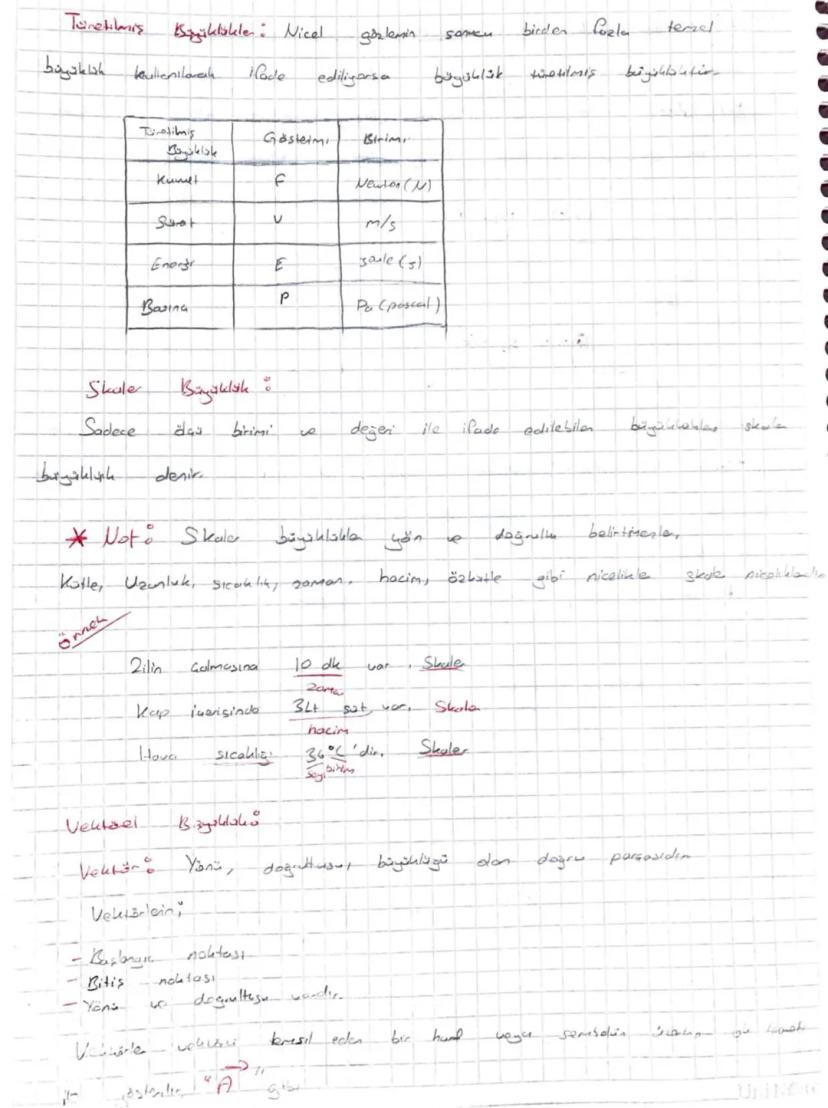 Türetilmiş Büyüklükler: Nicel gözlemin sonucu birden fazla temel
büyüklük kullanılarak ifade ediliyorsa büyüklük türetilmiş büyüklüktür.
Türetilmiş Büyüklük Gösterimi Birimi
Kuvvet F Newton (N)
Sürat V m/s
Enerji E Joule (J)
Basınç P Pa (pascal)
Skaler Büyüklük:
Sadece ölçü birimi ve değeri ile ifade edilebilen büyüklüklere skaler
büyüklük denir.
* Not: Skaler büyüklükler yön ve doğrultu belirtmezler.
Kütle, Uzunluk, sıcaklık, zaman, hacim, özkütle gibi nicelikler skaler niceliklerdir
Örnek
Zilin çalmasına 10 dk var. Skaler
zaman
Kap içerisinde 3Lt süt var. Skaler
hacim
Hava sıcaklığı 36°C'dir. Skaler
sayı birim
Vektörel Büyüklük:
Vektör: Yönü, doğrultusu, büyüklüğü olan doğru parçasıdır.
Vektörlerin;
- Başlangıç noktası
- Bitiş noktası
- Yönü ve doğrultusu vardır.
Vektörler vektörü temsil eden bir harf veya sembolün üzerine
gösterilir "A" gibi